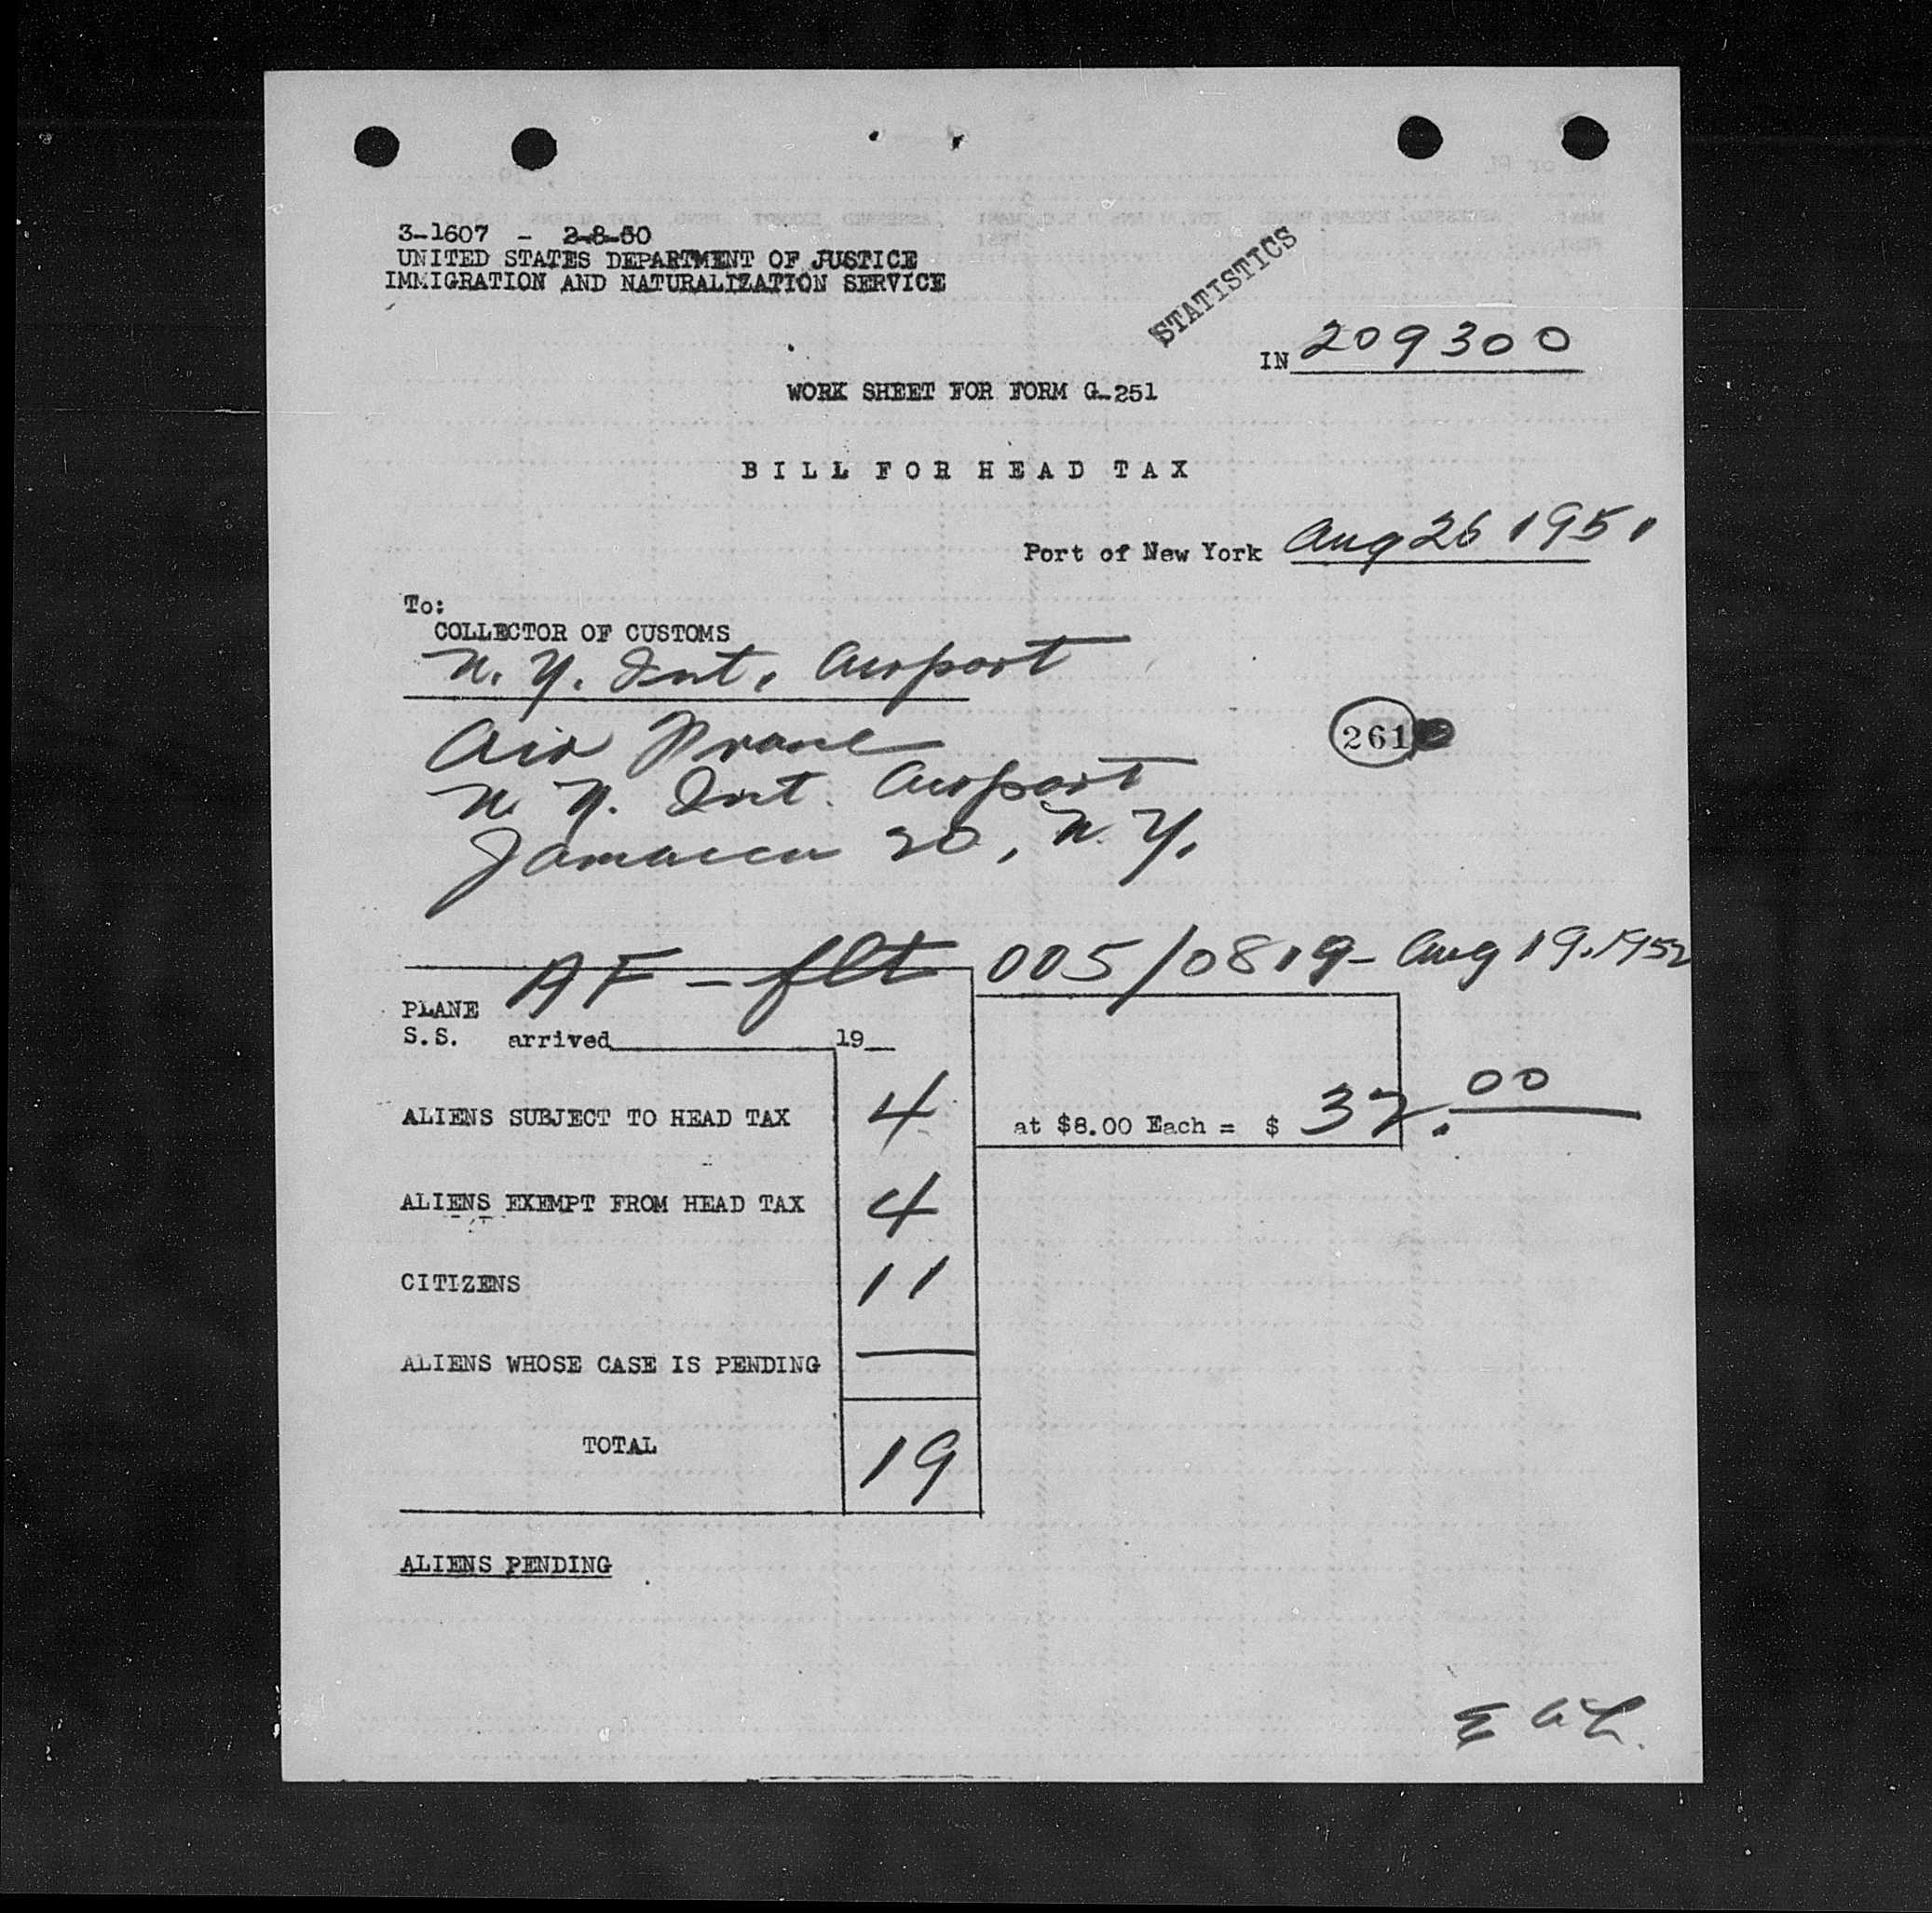 3-1607 - 2-8-50
UNITED STATES DEPARTMENT OF JUSTICE
IMMIGRATION AND NATURALIZATION SERVICE
STATISTICS
IN 209300
WORK SHEET FOR FORM G-251
BILL FOR HEAD TAX
Port of New York Aug 26 1951
To:
COLLECTOR OF CUSTOMS
N. Y. Int. Airport
261
Air France
N. Y. Int. Airport
Jamaica 30, N. Y.
AF - flt 005/0819 - Aug 19, 1952
PLANE
S.S. arrived 19
ALIENS SUBJECT TO HEAD TAX 4 at $8.00 Each = $ 32.00
ALIENS EXEMPT FROM HEAD TAX 4
CITIZENS 11
ALIENS WHOSE CASE IS PENDING —
TOTAL 19
ALIENS PENDING